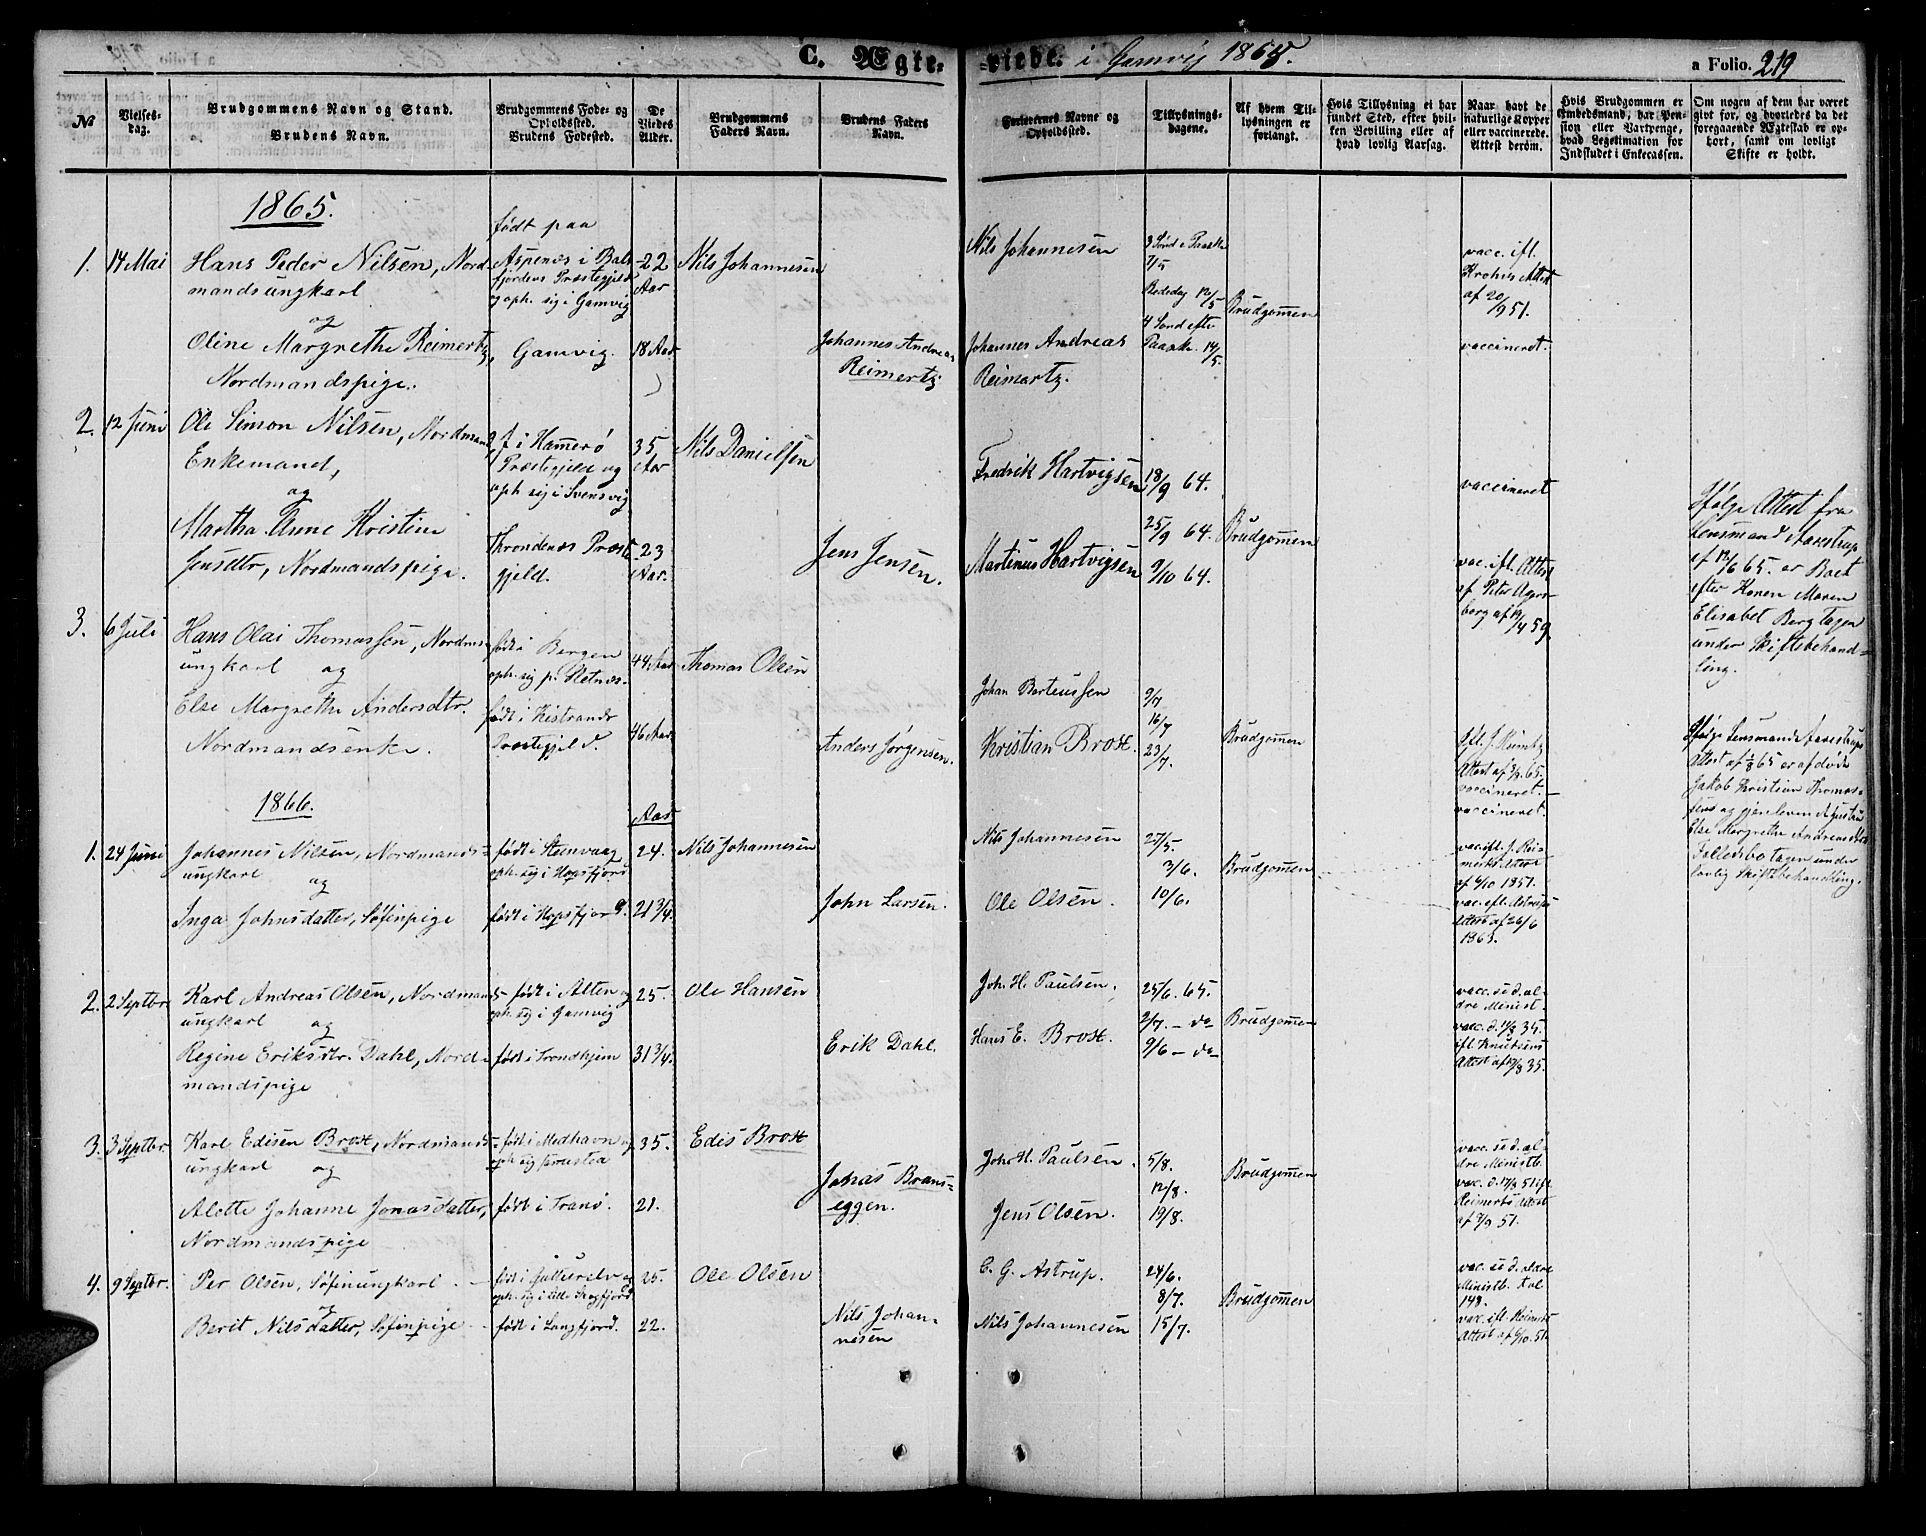 C. Ægte-
-viede. i Gamvig 1865.
a Folio. 219
No
Vielses-
dag.
Brudgommens Navn og Stand.
Brudens Navn.
Brudgommens Føde- og
Opholdssted.
Brudens Fødested.
De
Viedes
Alder.
Brudgommens
Faders Navn.
Brudens Faders
Navn.
Forlovernes Navne og
Opholdssted.
Tillysnings-
dagene.
Af hvem Til-
lysningen er
forlangt.
Hvis Tillysning ei har
fundet Sted, efter hvil-
ken Bevilling eller af
hvad lovlig Aarsag.
Naar havt de
naturlige Kopper
eller vaccinerede.
Attest derom.
Hvis Brudgommen er
Embedsmand, har Pen-
sion eller Vartpenge,
hvad Legitimation for
Indskudet i Enkecassen.
Om nogen af dem har været
givt for, og hvorledes da det
foregaaende Ægteskab er op-
hørt, samt om lovligt
Skifte er holdt.
1865.
1. 14 Mai
Hans Peder Nilsen, Nord-
mandsungkarl
og
Oline Margrethe Reimertz,
Nordmandspige.
født paa
Aspenæs i Bals-
fjordens Præstegjeld
og oph. sig i Gamvig
Gamvig.
22
Aar
18 Aar
Nils Johannesen
Johannes Andreas
Reimertz
Nils Johannesen
Johannes Andreas
Reimartz.
3 Sønd e Paaske
7/5
Bededag 12/5
4 Sønd efter
Paaske 14/5.
Brudgommen
vacc. ifl.
Krohns Attest
af 20/9 51.
vaccineret.
2. 12 Juni
Ole Simon Nilsen, Nordmand,
Enkemand,
og
Martha Anne Kristine
Jensdtr, Nordmandspige.
f. i Hamerø
Præstegjeld og
oph. sig i Svensvig
Throndenæs Præste
gjeld.
35
Aar
23
Aar.
Nils Danielsen
Jens Jensen.
Fredrik Hartvigsen
Martinus Hartvigsen
18/9 64.
25/9 64.
9/10 64.
Brudgommen
vaccineret
vac. ifl. Attest
af Peter Agers-
borg af 19/4 59.
Ifølge Attest fra
Lensmand Aarestrup
af 12/6 65. er Boet
efter Konen Maren
Elisabet Berg tagen
under Skiftebehand-
ling.
3. 6 Juli
Hans Olai Thomassen, Nordms-
ungkarl og
Else Margrethe Andersdtr.
Nordmandsenke.
født i Bergen
oph. sig p. Sletnæs.
født i Kistrands
Præstegjeld.
44 Aar
46 Aar
Thomas Olsen
Anders Jørgensen.
Johan Berteussen
Kristian Brost.
9/7
16/7
23/7.
Brudgommen
vaccineret.
vaccineret.
Ifølge Lensmand Aarestrups
Attest af 1/8 65 er afdøde
Jakob Kristian Thomas-
sens og gjenlevende Hustru
Else Margrethe Andreasdtrs
Fællesbo tagen under
lovlig Skiftebehandling.
1866.
Aar
1. 24 Juni
Johannes Nilsen, Nordmands-
ungkarl
og
Inga Johnsdatter, Søfinpige
født i Stenvaag
oph. sig i Hopsfjord
født i Hopsfjord.
24.
21 3/4.
Nils Johannesen
John Larsen.
Nils Johannesen
Ole Olsen.
27/5.
3/6.
10/6.
Brudgommen
vac. ifl. J. Rei-
merts Attest
af 6/10 1851.
vac. ifl. Astrups
Attest af 26/6
1863.
2. 2 Septbr.
Karl Andreas Olsen, Nordmands-
ungkarl og
Regine Eriksdtr. Dahl, Nord-
mandspige
født i Alten og
oph. sig i Gamvig
født i Trondhjem
25.
31 3/4.
Ole Hansen
Erik Dahl.
Joh. H. Paulsen.
Hans E. Brost.
25/6. 65.
2/7. – do
9/6 – do
Brudgommen
vacc. se d. al-
dre Minist-
vac. d. 1/8 35.
ifl. Knudsens
Attest af 17/8 35.
3. 3 Septbr.
Karl Edisen Brost, Nordmands-
ungkarl og
Alette Johanne Jonasdatter,
Nordmandspige
født i Medhavn og
oph. sig
født i Tranø.
35.
21.
Edis Brost
Johas Brans-
eggen.
Joh. H. Paulsen.
Jens Olsen.
5/8.
12/8.
19/8.
Brudgommen
vacc. se d. al
dre Ministb.
vac. d. 17/8 51 ifl.
Reimerts Attest
af 7/9 51.
4. 9 Septbr.
Per Olsen, Søfinungkarl
og
Berit Nilsdatter, Søfinpige
født i og
oph. sig i lille Skogfjord
født i Langfjord.
25.
22.
Ole Olsen
Nils Johan-
nesen
C. G. Astrup.
Nils Johannesen
24/6.
8/7.
15/7.
Brudgommen
vac. se d.
Ministb. Fol
148.
vac. ifl. Reimerts
Attest af 6/10. 51.